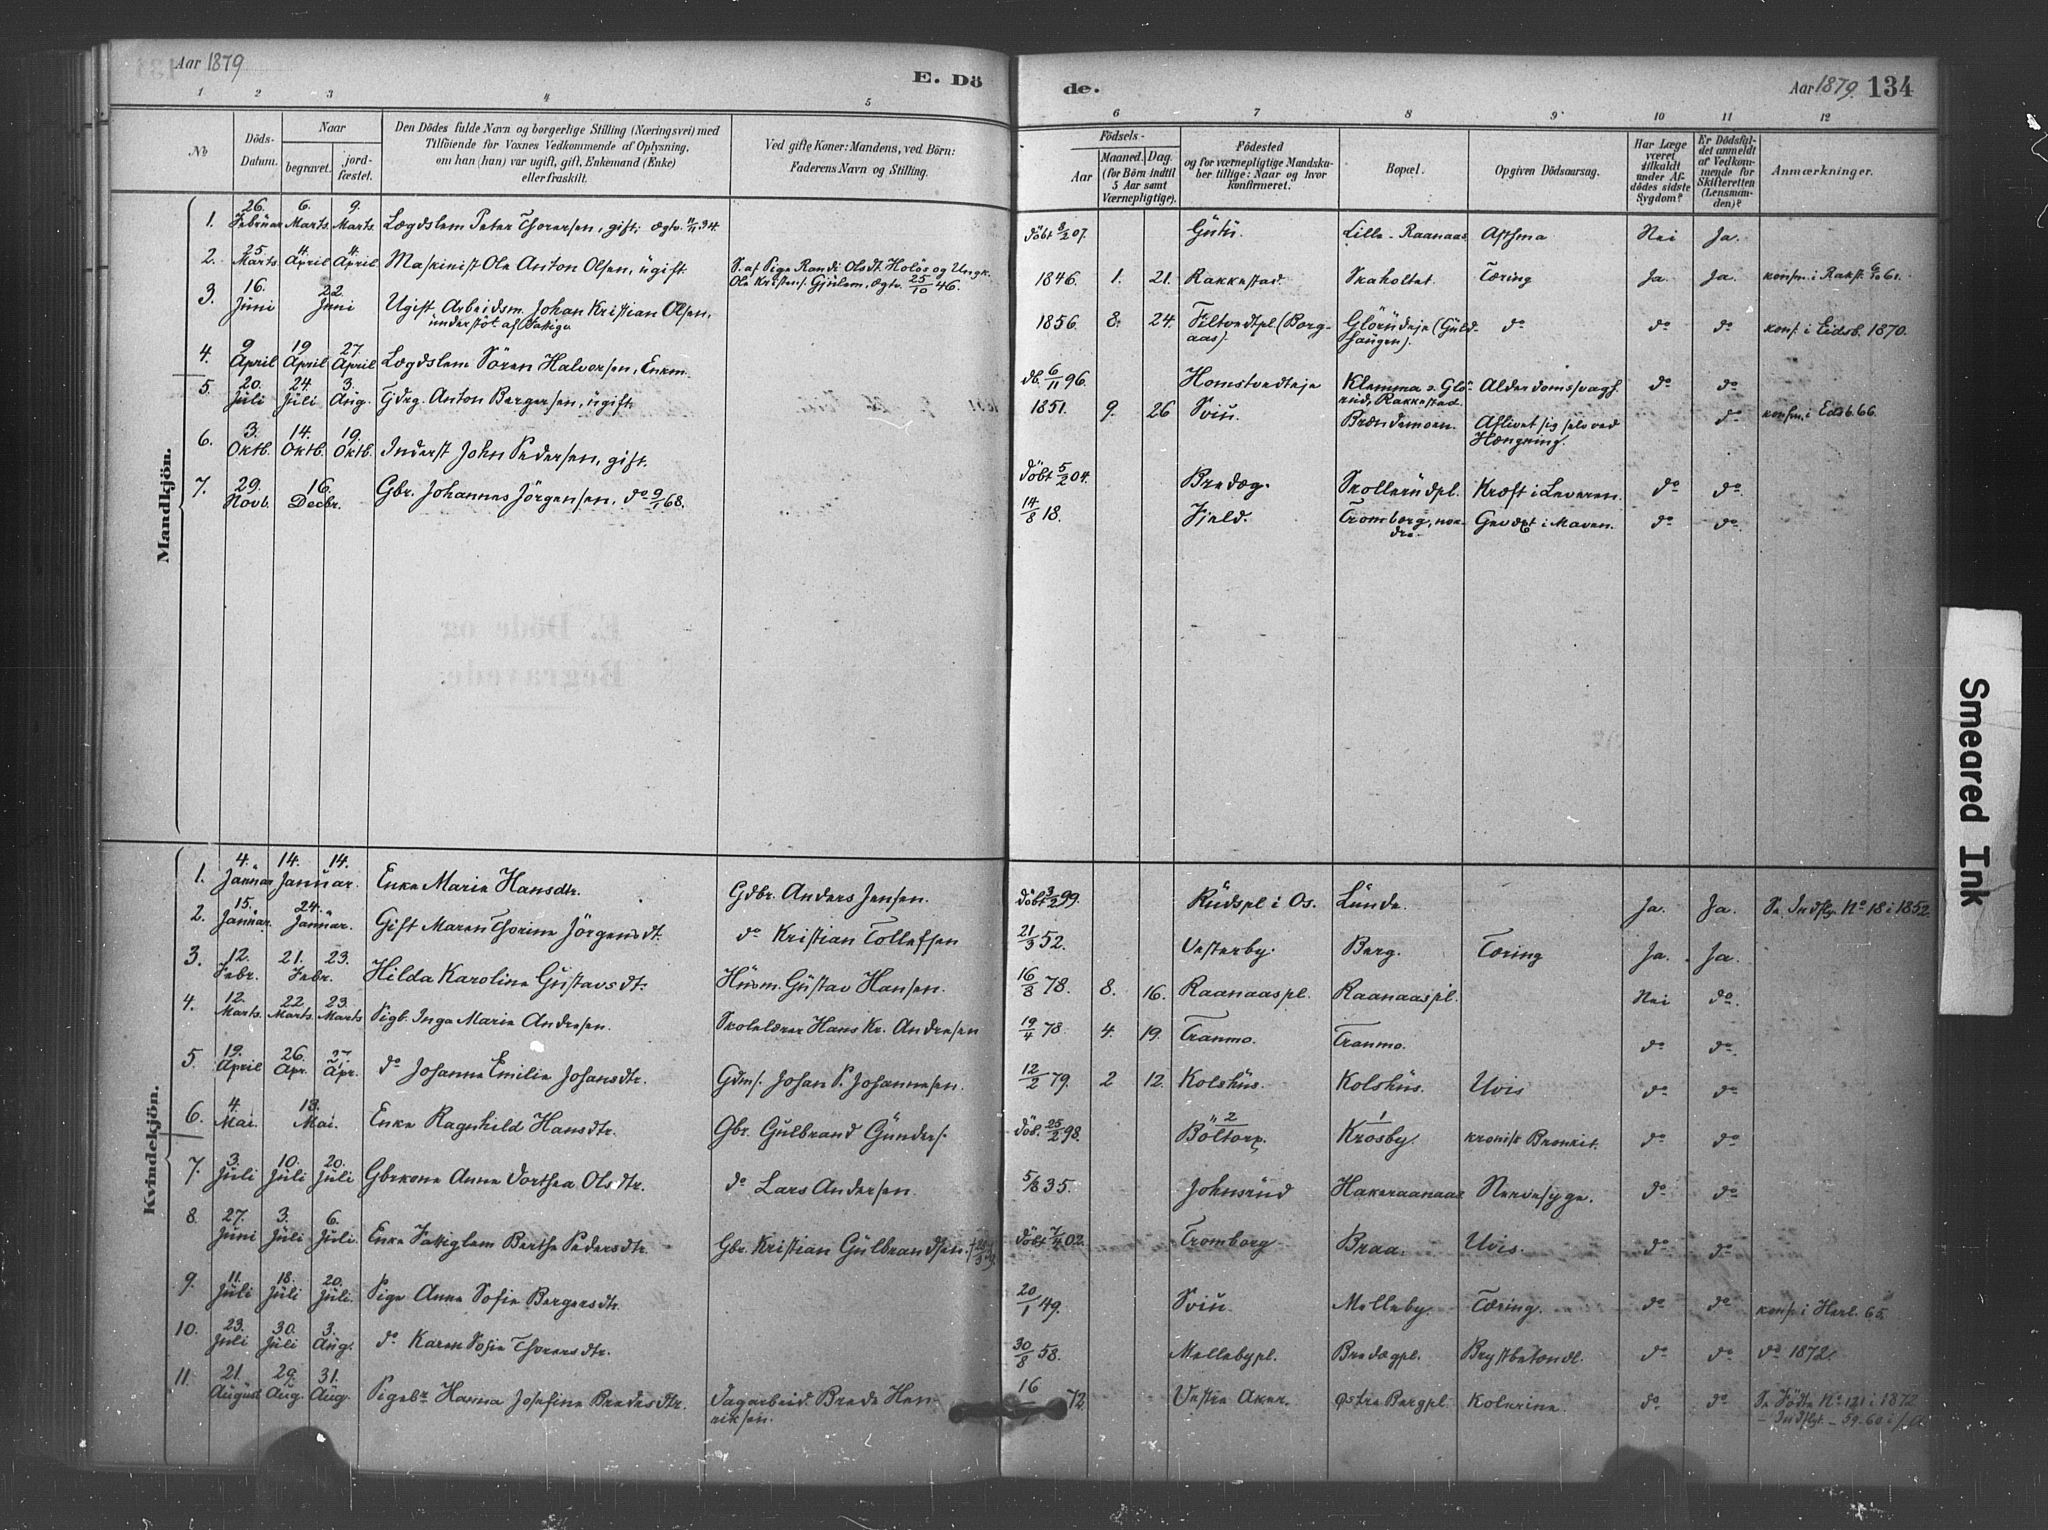 Aar 1879
E. Dö
de.
Aar 1879. 134
1 2 3 4 5 6 7 8 9 10 11 12
No
Döds-Datum.
Naar
begravet.
jord-fæstet.
Den Dödes fulde Navn og borgerlige Stilling (Næringsvei) med
Tilföiende for Voxnes Vedkommende af Oplysning,
om han (hun) var ugift, gift, Enkemand (Enke)
eller fraskilt.
Ved gifte Koner: Mandens, ved Börn:
Faderens Navn og Stilling.
Födsels-
Aar
Maaned. Dag.
(for Börn indtil
5 Aar samt
Værnepligtige).
Födested
og for værnepligtige Mandska-
ber tillige: Naar og hvor
konfirmeret.
Bopæl.
Opgiven Dödsaarsag.
Har Læge
været
tilkaldt
under Af-
dödes sidste
Sygdom?
Er Dödsfal-
det anmeldt
af Vedkom-
mende for
Skifteretten
(Lensman-
den)?
Anmærkninger.
Mandkjön.
1. 26. Februar 6. Marts. 9. Marts. Lægdslem Peter Thorersen, gift; ægtv. 34. döbt 07. Lille-Raanaas Asthma Nei Ja.
2. 25. Marts 4. April 4. April Maskinist Ole Anton Olsen, ugift S. af Pige Randi Olsdt. Holös og Ungk.
Ole Kristens. Gjulem, ægtv. 25/10 46. 1846. 1. 21. Rakkestad. Skaholtet. Tæring Ja. Ja. konfm. i Rakst. 61.
3. 16. Juni 22. Juni Ugift Arbeidsm. Johan Kristian Olsen,
understöt. af Fattigv. 1856. 8. 24. (Borg-
aas). do do do konf. i Eidsb. 1870.
4. 9 April 19 April 27 April Lægdslem Sören Halvorsen, Enkm. db. 6/11 96. Homstvedteje Rakkestad. Alderdomssvagh. do do
5. 20. Juli 24. Juli 3. Aug. Gdrg. Anton Bergersen, ugift 1851. 9. 26 Sviu. Brændemoen. Aflivet sig selv ved
Hængning. do konfm. i Eidsb. 66.
6. 3. Oktb. 14. Oktb. 19. Oktb. Inderst John Pedersen, gift. Döbt 5/2 04. Bredæg. Skollerudpl. Kræft i Leveren. do do.
7. 29. Novb. 16. Decbr. Gbr. Johannes Jörgensen, do 9/1 68. 14/8 18. Fjeld. Tromborg, nor-
dre. i Maven. do do.
Kvindekjön.
1. 4. Januar 14. 14. Januar. Enke Marie Hansdtr. Gdbr. Anders Jensen. döbt 3/2 99. Rudspl i Os. Lunde. Ja. Ja. Se Indfly. No 18 i 1852.
2. 15. Januar. 24. Januar. Gift Maren Thorine Jörgensdt. do Kristian Tollefsen 21/3 52. Vesterby. Berg. Tæring Ja. Ja.
3. 12. Febr. 21. 23. Febr. Hilda Karoline Gustavsdt. Husm. Gustav Hansen. 16/8 78. 8. 16. Raanaaspl. Raanaaspl. Nei do.
4. 12. Marts. 22 Marts. 23. Marts Pigb. Inga Marie Andresen. Skolelærer Hans Kr. Andresen 19/4 78. 4. 19. Tranmo. Tranmo. do do.
5. 19. April 26. Apr. 27 Apr. do Johanne Emilie Johansdtr. Gdms. Johan P. Johannesen. 12/2 79. 2 12. Kolshus. Kolshus. Uvis do do
6. 4. Mai. 13. Mai. Enke Ragnhild Hansdtr. Gbr. Gulbrand Gunders. döb. 25/2 98. Böltorp. Krosby. kronisk Bronkit. do do
7. 3. Juli 10. Juli 20. Juli Gbrkone Anne Dorthea Olsdtr. do Lars Andersen. 5/8 35. Johnsrud Hakeraanaas Nervesyge. do do
8. 27. Juni 3. Juli 6. Juli. Enke Fattiglem Berthe Pedersdtr. Gbr. Kristian Gulbrandsen. döbt 7/4 02. Tromborg Braa. Uvis. do do
9. 11. Juli 18. Juli 20. Juli. Pige Anne Sofie Bergersdtr. 20/1 49. Sviu. Melleby. Tæring. do do konf. i Herl. 65.
10. 23. Juli 30. Juli 3. Aug. do Karen Sofie Thorersdtr. 30/8 58. Mellebypl. Bredægpl. Brystbetændl. do do do 1872.
11. 21. August 29. Aug. 31. Aug. Pigebr Hanna Josefine Bredesdtr. Dagarbeid. Brede Hen-
riksen. 16 72. Vestre Aker. østre Bergpl. Kolerine. do do. Se Födte No 121 i 1872
– Indflyt. – 59-60 i
Smeared Ink